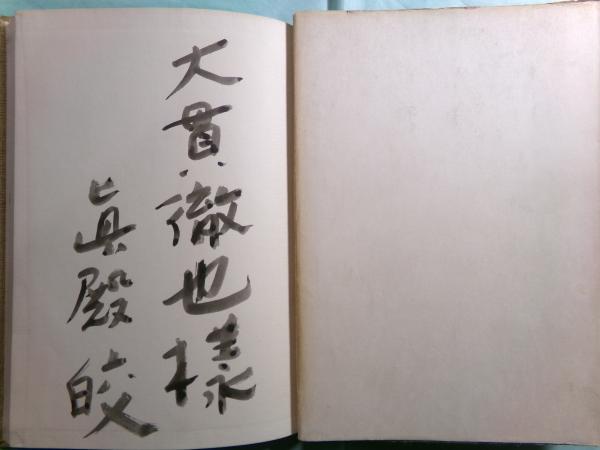 大貫徹也樣
眞殿皎